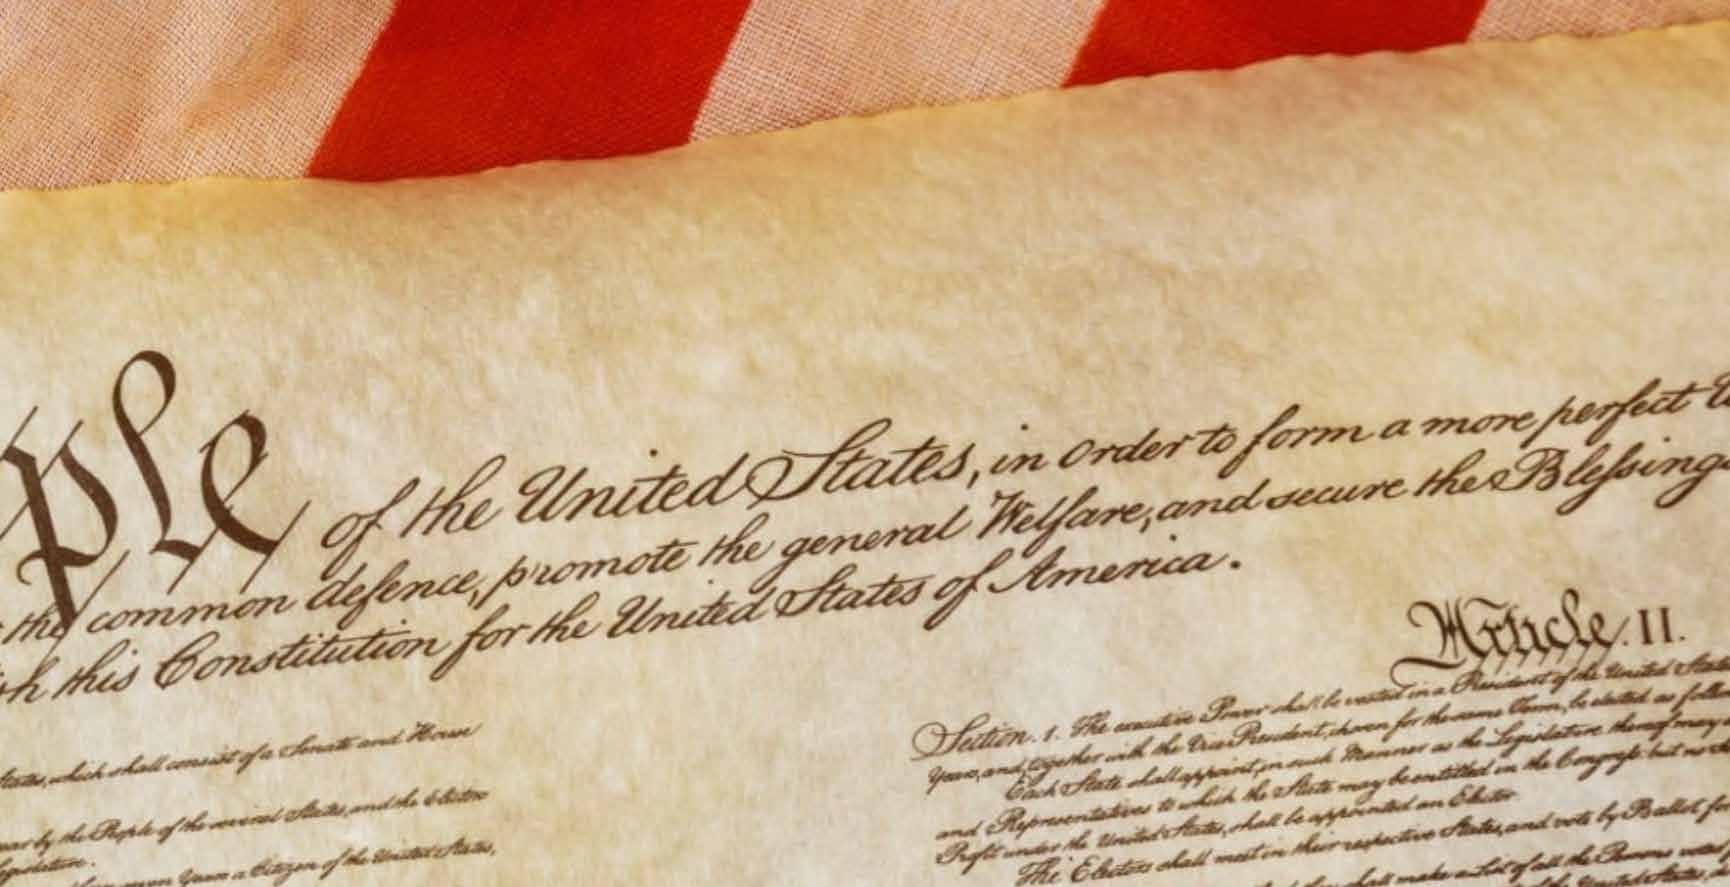 ple of the United States, in order to form a more perfect
the common defence, promote the general Welfare, and secure the Blessings
this Constitution for the United States of America.
Article. II.
States, which shall consist of a Senate and House
by the People of the several States, and the Electors
Legislature.
a Citizen of the United States,
Section. 1. The executive Power shall be vested in a President of the United States
Years, and, together with the Vice President, chosen for the same Term, be elected as follows
Each State shall appoint, in such Manner as the Legislature thereof may
and Representatives to which the State may be entitled in the Congress but no
Profit under the United States, shall be appointed an Elector.
The Electors shall meet in their respective States, and vote by Ballot for
shall make a List of all the Persons voted
United States,